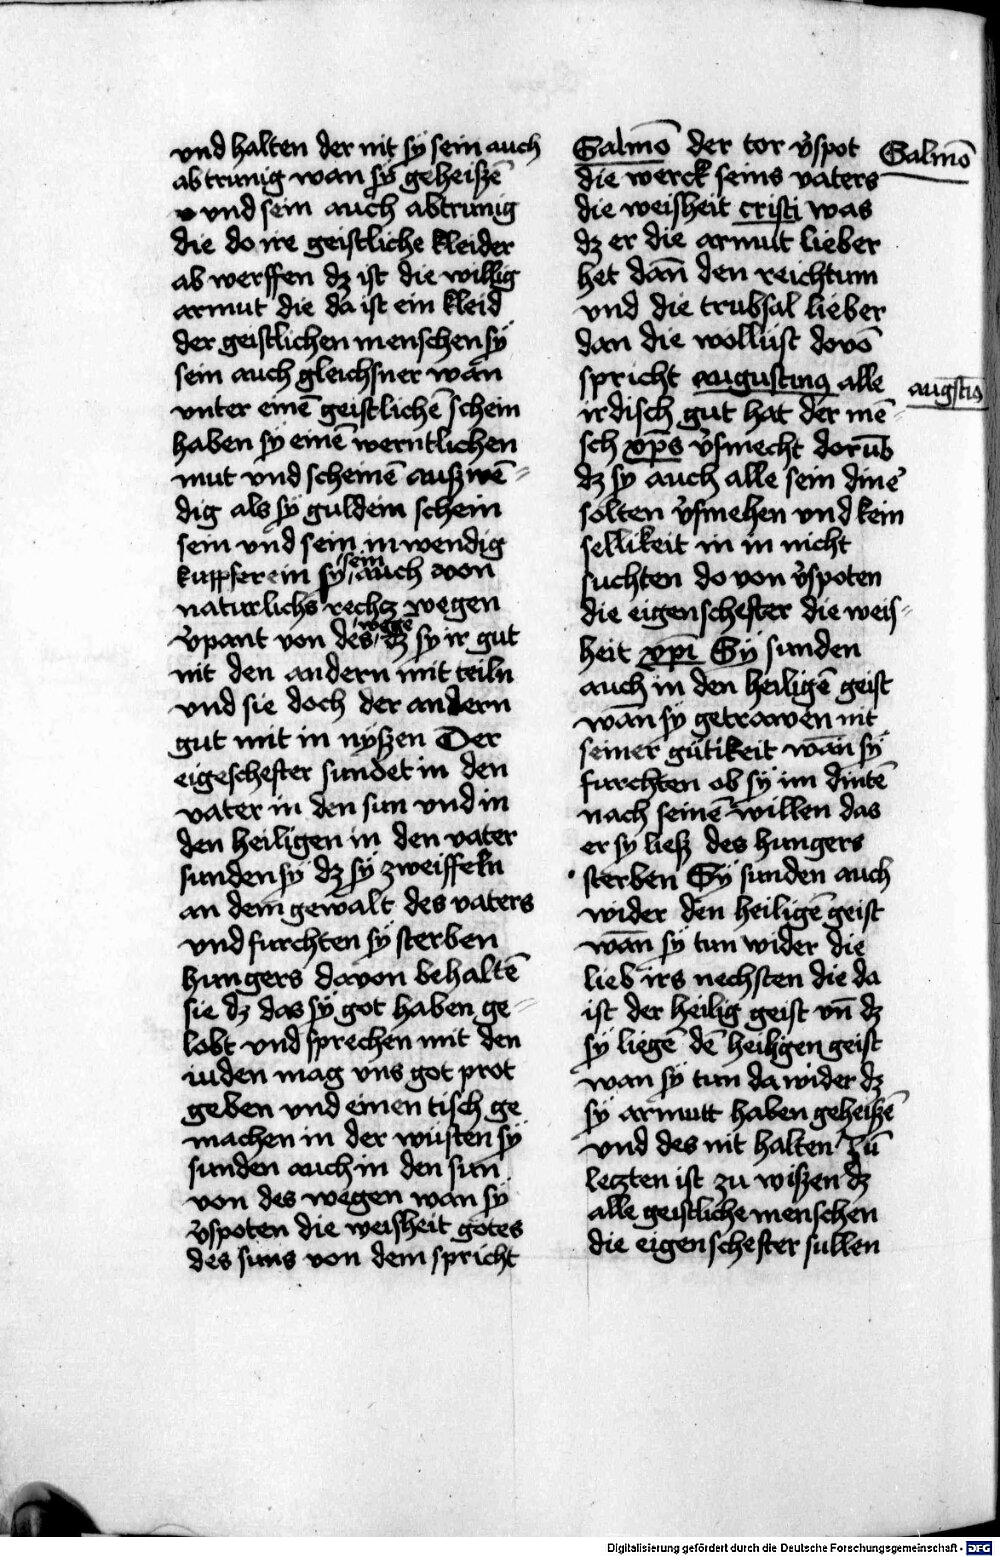 vnd halten der nit sÿ sein auch
abtrunig wan sÿ geheiszē
vnd sein auch abtrunig
die do ire geistliche kleider
ab werffen dz ist die willig
armut die da ist ein kleid
der geistlichen menschen sÿ
sein auch gleichsner wan̄
vnter einē geistlichē schein
haben sÿ einē werntlichen
mut vnd scheinē auszwē-
dig als sÿ guldein schein
sein vnd sein inwendig
kupfferein sÿ sein auch von
naturlichs rechcz wegen
v̓pant von des wege dz sy ir gut
nit den andern mit teiln
vnd sie doch der andern
gut mit in nyszen Der
eigeschefter sundet in den
vater in den sun vnd in
den heiligen in den vater
sunden sÿ dz sÿ zweiffeln
an dem gewalt des vaters
vnd furchten sÿ sterben
hungers davon behaltē
sie dz das sÿ got haben ge-
lobt vnd sprechen mit den
iuden mag vns got prot
geben vnd einen tisch ge
machen in der wüsten sÿ
sunden auch in den sun
von des wegen wan sÿ
v̓spoten die weisheit gotes
des suns von dem spricht
Salmō der tor v̓spot
die werck seins vaters
die weisheit cristi was
dz er die armut lieber
het dan̄ den reichtum
vnd die trubsal lieber
dan die wollust dovō
spricht augustinꝯ alle
irdisch gut hat der mē-
sch xp̄s v̓smecht dorūb
dz sy auch alle sein dine᷒
solten v̓smehen vnd kein
sellikeit in in nicht
suchten do von v̓spoten
die eigenschefter die weis-
heit xp̄i Sÿ sunden
auch in den heiligē geist
wan sÿ getrawen nit
seiner gütikeit wan sÿ
furchten ob sÿ im dintē
nach seinē willen das
er sy liesz des hungers
sterben Sÿ sunden auch
wider den heiligē geist
wan̄ sÿ tun wider die
lieb irs nechsten die da
ist der heilig geist vn̄ dz
sÿ liegē dē heiligen geist
wan sÿ tun da wider dz
sÿ armutt haben geheiszē
vnd des nit halten Zū
leczten ist zu wiszen dz
alle geistliche menschen
die eigenschefter sullen
Salmō
augstiꝯ
Digitalisierung gefördert durch die Deutsche Forschungsgemeinschaft - DFG